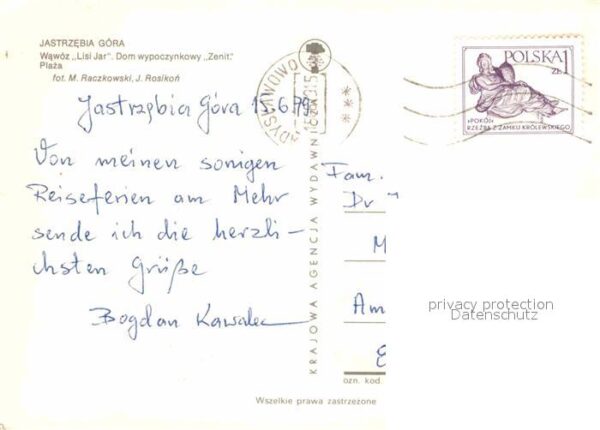 JASTRZĘBIA GÓRA
Wąwóz „Lisi Jar”. Dom wypoczynkowy „Zenit.”
Plaża
fot. M. Raczkowski, J. Rosikoń
Jastrzębia Góra 15.6.79
Von meinen sonigen
Reiseferien am Mehr
sende ich die herzli-
chsten Grüße
Bogdan Kawalec
KRAJOWA AGENCJA WYDAWNICZA
POLSKA 1
ZŁ
»POKÓJ«
RZEŹBA Z ZAMKU KRÓLEWSKIEGO
Fam.
Dr
M
Am
privacy protection
Datenschutz
ozn. kod.
Wszelkie prawa zastrzeżone